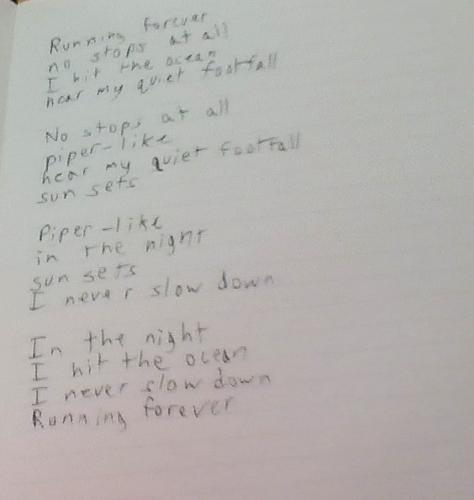 Running forever
no stops at all
I hit the ocean
hear my quiet footfall
No stops at all
piper-like
hear my quiet footfall
sun sets
Piper-like
in the night
sun sets
I never slow down
In the night
I hit the ocean
I never slow down
Running forever